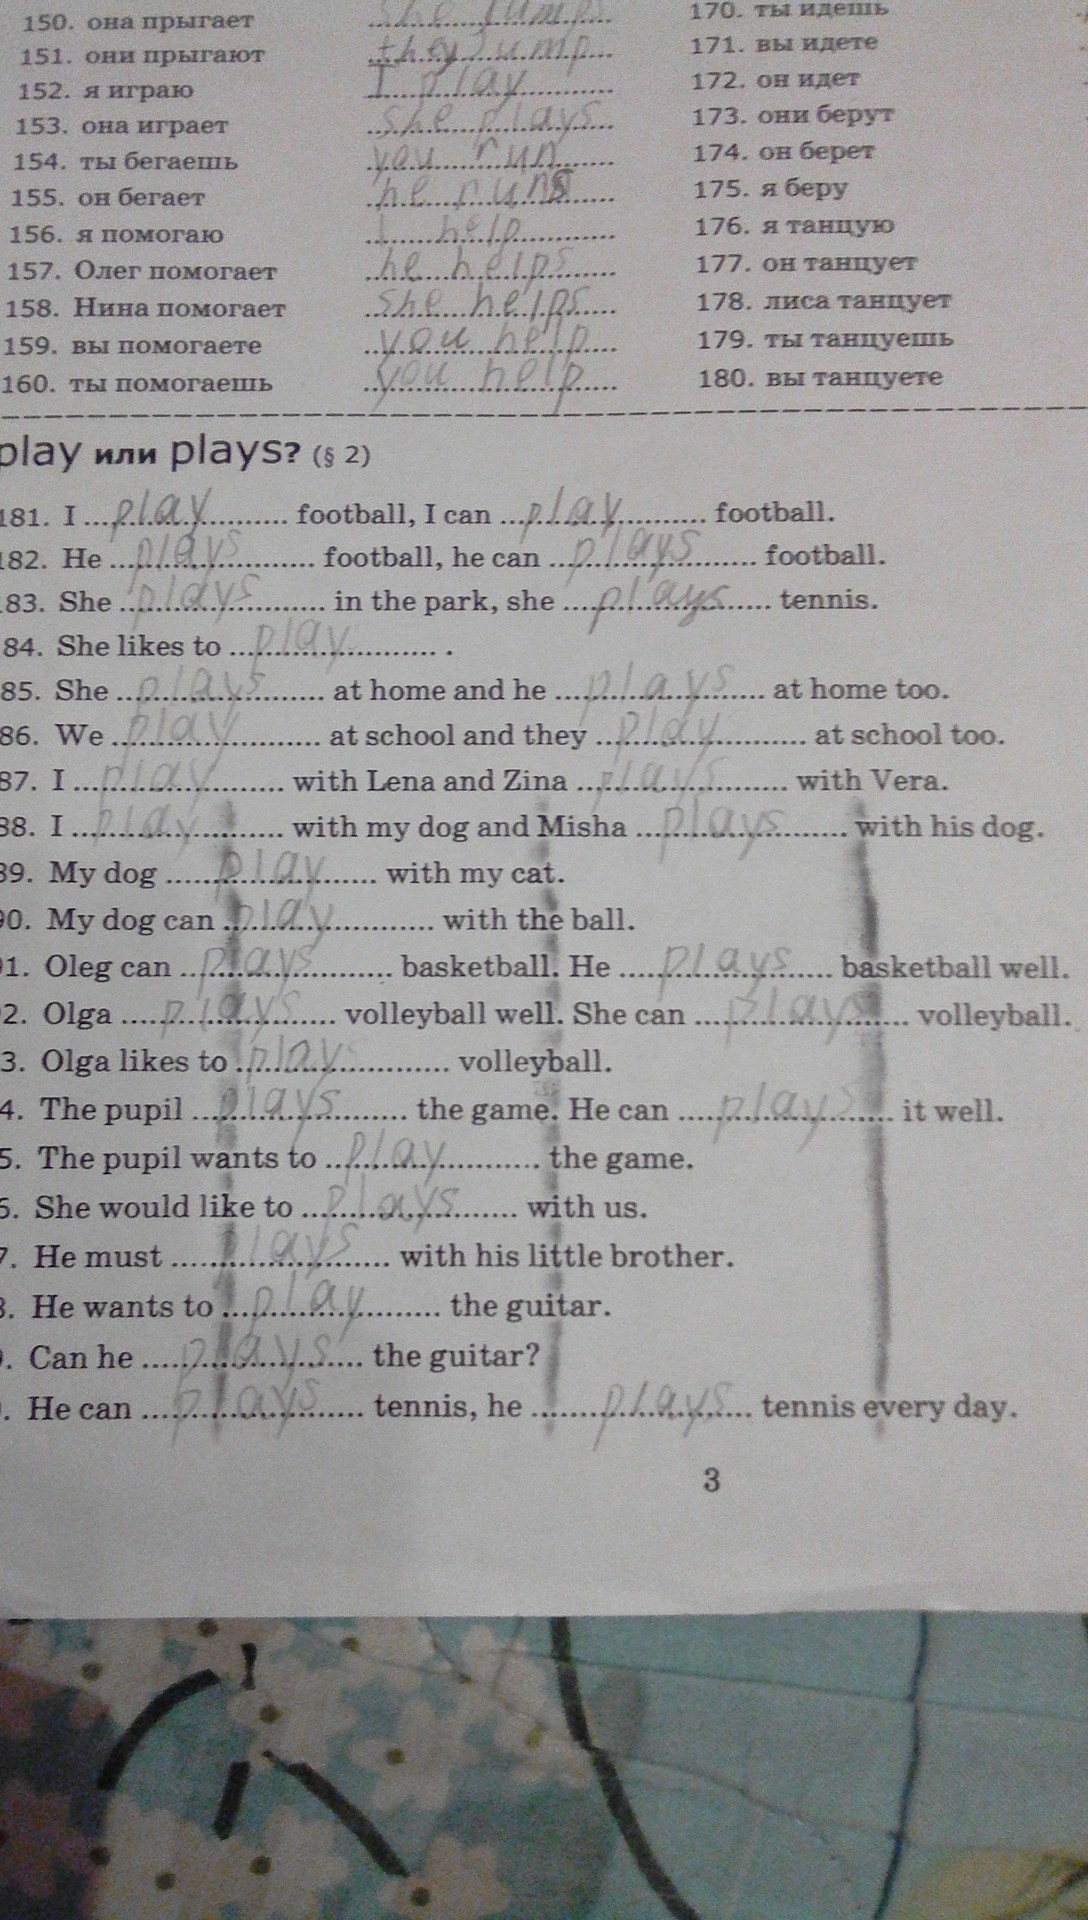 150. она прыгает she jumps 170. ты идешь
151. они прыгают they jump 171. вы идете
152. я играю I play 172. он идет
153. она играет she plays 173. они берут
154. ты бегаешь you run 174. он берет
155. он бегает he runs 175. я беру
156. я помогаю I help 176. я танцую
157. Олег помогает he helps 177. он танцует
158. Нина помогает she helps 178. лиса танцует
159. вы помогаете you help 179. ты танцуешь
160. ты помогаешь you help 180. вы танцуете
play или plays? (§ 2)
181. I play football, I can play football.
182. He plays football, he can plays football.
83. She plays in the park, she plays tennis.
84. She likes to play.
85. She plays at home and he plays at home too.
86. We play at school and they play at school too.
87. I play with Lena and Zina plays with Vera.
88. I play with my dog and Misha plays with his dog.
89. My dog play with my cat.
90. My dog can play with the ball.
1. Oleg can plays basketball. He plays basketball well.
2. Olga plays volleyball well. She can plays volleyball.
3. Olga likes to plays volleyball.
4. The pupil plays the game. He can plays it well.
5. The pupil wants to play the game.
6. She would like to plays with us.
7. He must plays with his little brother.
8. He wants to play the guitar.
. Can he plays the guitar?
. He can plays tennis, he plays tennis every day.
3